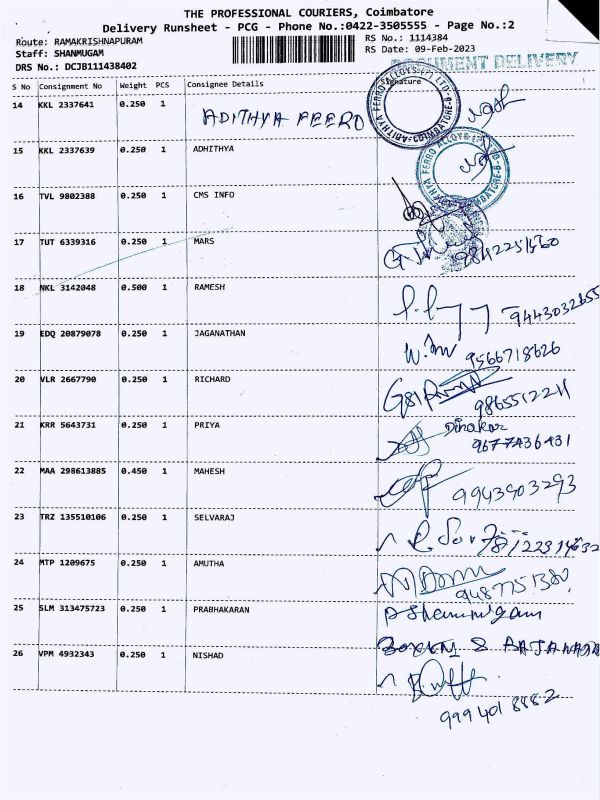 THE PROFESSIONAL COURIERS, Coimbatore
Delivery Runsheet - PCG - Phone No.:0422-3505555 - Page No.:2
Route: RAMAKRISHNAPURAM RS No.: 1114384
Staff: SHANMUGAM RS Date: 09-Feb-2023
DOCUMENT DELIVERY
DRS No.: DCJB111438402
S No Consignment No Weight PCS Consignee Details Signature
14 KKL 2337641 0.250 1 ADITHYA FERRO
15 KKL 2337639 0.250 1 ADHITHYA
16 TVL 9802388 0.250 1 CMS INFO
17 TUT 6339316 0.250 1 MARS
18 NKL 3142048 0.500 1 RAMESH
9443032655
19 EDQ 20879078 0.250 1 JAGANATHAN
9566718626
20 VLR 2667790 0.250 1 RICHARD
9865512211
21 KRR 5643731 0.250 1 PRIYA Dinakar
9677436431
22 MAA 298613885 0.450 1 MAHESH
9943903293
23 TRZ 135510106 0.250 1 SELVARAJ
24 MTP 1209675 0.250 1 AMUTHA
25 SLM 313475723 0.250 1 PRABHAKARAN P Shanmugam
26 VPM 4932343 0.250 1 NISHAD
9994018882